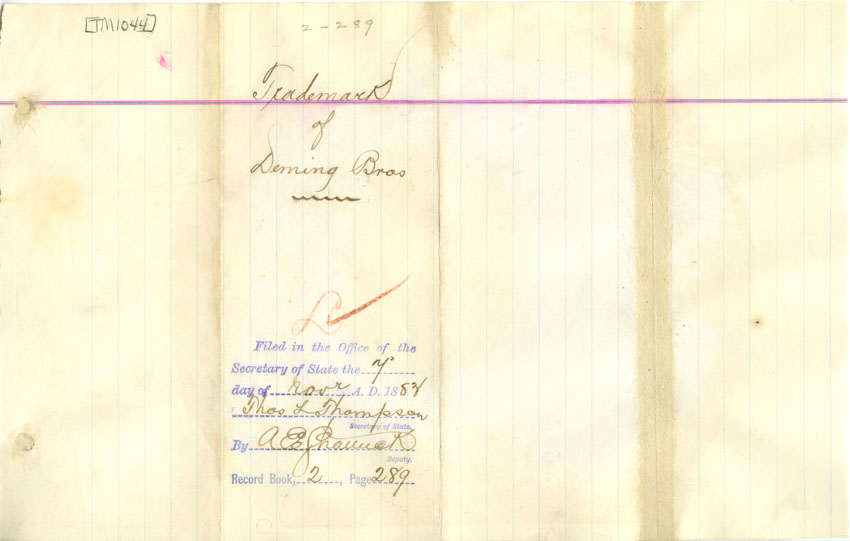 [TM1044]
2-289
Trademark
of
Deming Bros
Filed in the Office of the
Secretary of State the 7th
day of Novr A. D. 188
Thos L Thompson
Secretary of State.
By A E
Deputy.
Record Book, 2, Page 289